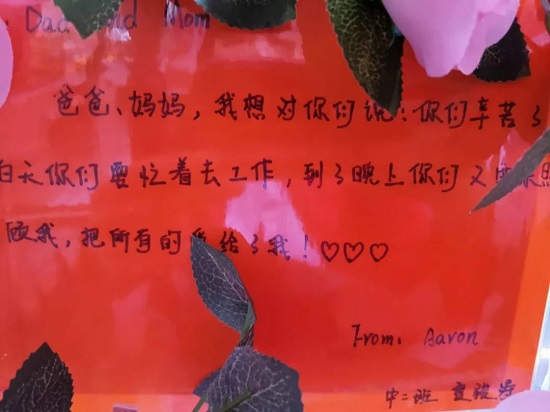 Dad and Mom
爸爸、妈妈,我想对你们说:你们辛苦了
白天你们要忙着去工作,到了晚上你们又要来照
顾我,把所有的爱给了我!♡♡♡
From. Aaron
中二班